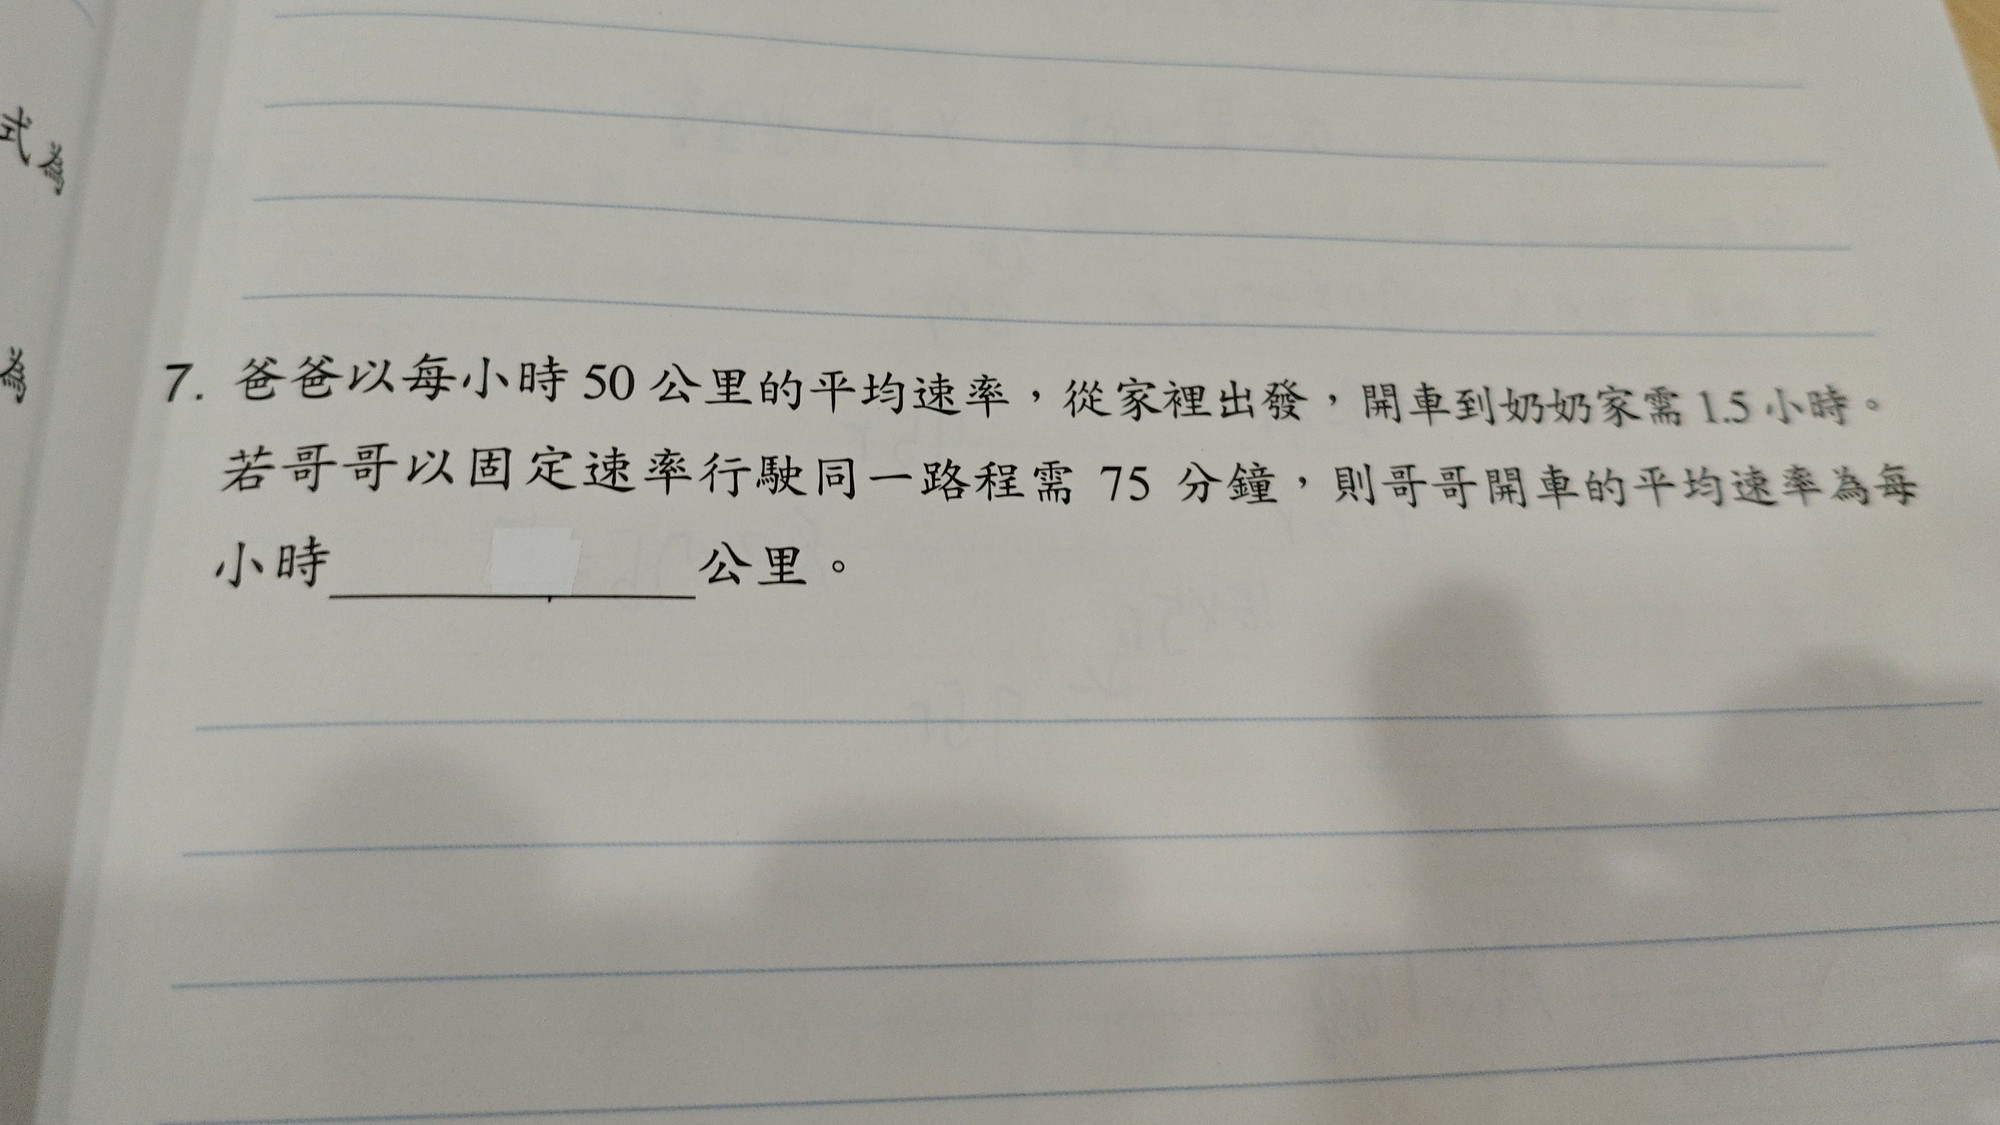 式為
為
7. 爸爸以每小時 50 公里的平均速率，從家裡出發，開車到奶奶家需 1.5 小時。
若哥哥以固定速率行駛同一路程需 75 分鐘，則哥哥開車的平均速率為每
小時＿＿＿＿＿＿公里。